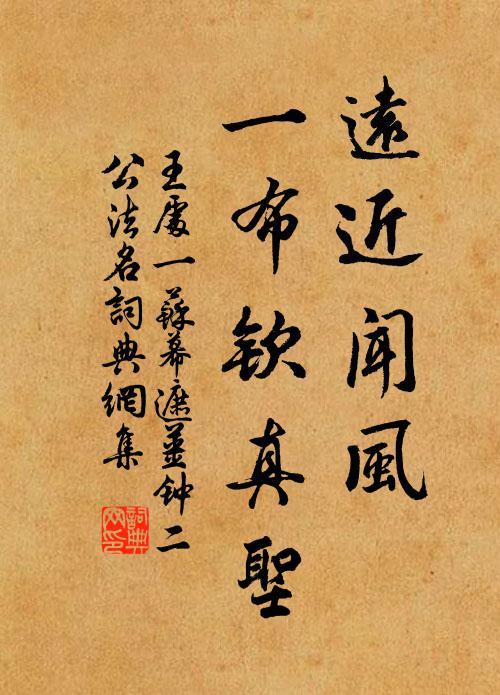 遠近聞風
一布欽真聖
王處一蘇幕遮姜钟二
公法名詞典網集